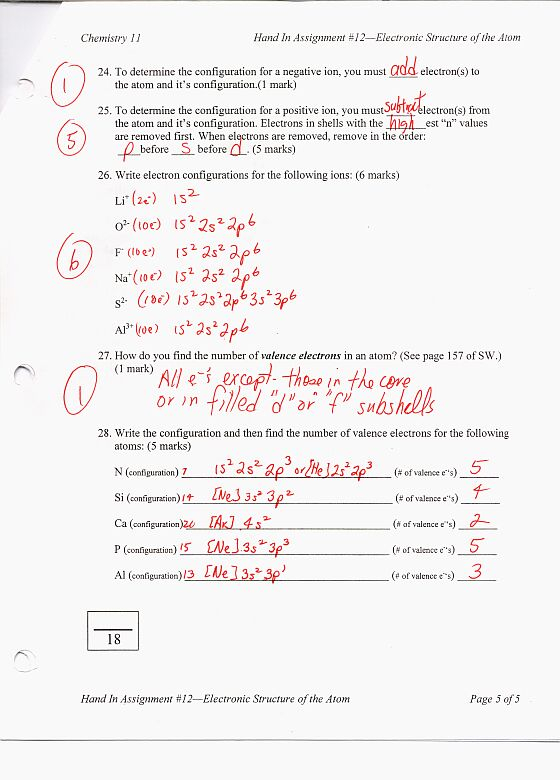 Chemistry 11 Hand In Assignment #12—Electronic Structure of the Atom
① 24. To determine the configuration for a negative ion, you must add electron(s) to
the atom and it's configuration.(1 mark)
25. To determine the configuration for a positive ion, you must subtract electron(s) from
⑤ the atom and it's configuration. Electrons in shells with the high est "n" values
are removed first. When electrons are removed, remove in the order:
p before s before d. (5 marks)
26. Write electron configurations for the following ions: (6 marks)
Li⁺ (2e⁻) 1s²
O²⁻ (10e⁻) 1s² 2s² 2p⁶
⑥ F⁻ (10e⁻) 1s² 2s² 2p⁶
Na⁺ (10e⁻) 1s² 2s² 2p⁶
S²⁻ (18e⁻) 1s² 2s² 2p⁶ 3s² 3p⁶
Al³⁺ (10e) 1s² 2s² 2p⁶
27. How do you find the number of valence electrons in an atom? (See page 157 of SW.)
① (1 mark) All e⁻'s except those in the core
or in filled "d" or "f" subshells
28. Write the configuration and then find the number of valence electrons for the following
atoms: (5 marks)
N (configuration) 7 1s² 2s² 2p³ or [He] 2s² 2p³ (# of valence e⁻'s) 5
Si (configuration) 14 [Ne] 3s² 3p² (# of valence e⁻'s) 4
Ca (configuration) 20 [Ar] 4s² (# of valence e⁻'s) 2
P (configuration) 15 [Ne] 3s² 3p³ (# of valence e⁻'s) 5
Al (configuration) 13 [Ne] 3s² 3p¹ (# of valence e⁻'s) 3
18
Hand In Assignment #12—Electronic Structure of the Atom Page 5 of 5